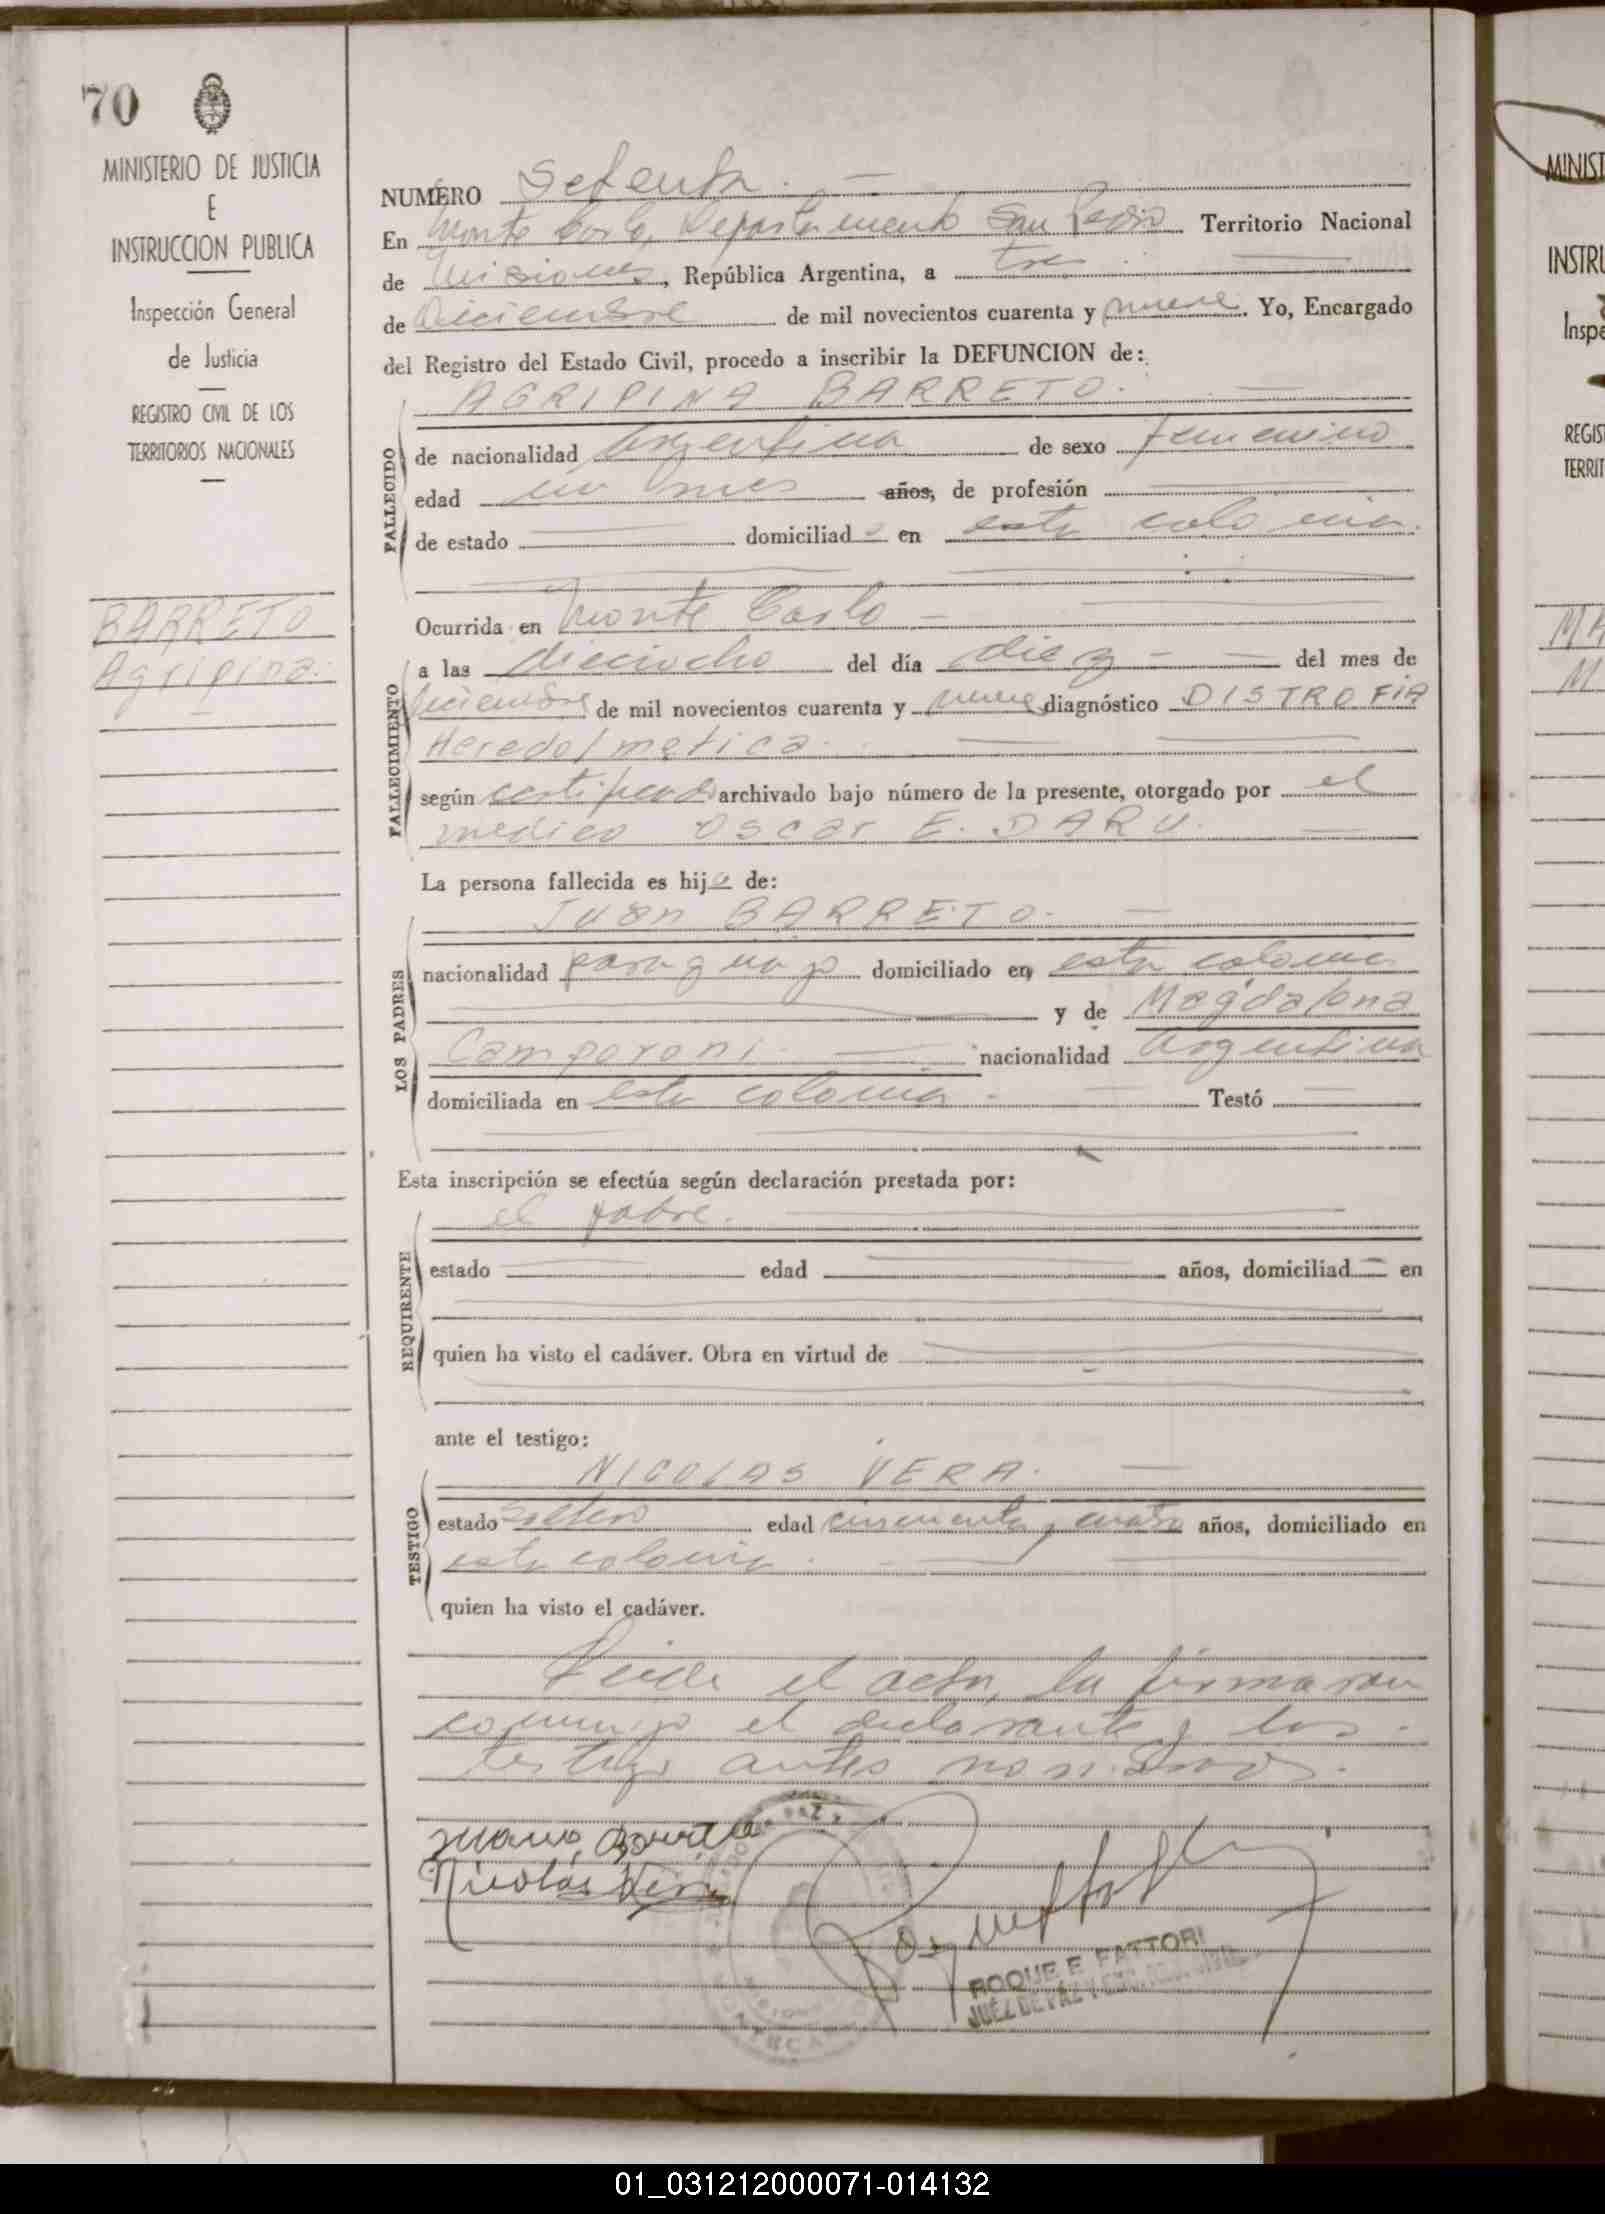 70
MINISTERIO DE JUSTICIA
E
INSTRUCCION PUBLICA
Inspección General
de Justicia
REGISTRO CIVIL DE LOS
TERRITORIOS NACIONALES
BARRETO
Agripina.
NUMERO Setenta.
En Monte Carlo, Departamento San Pedro Territorio Nacional
de Misiones, República Argentina, a tres
de Diciembre de mil novecientos cuarenta y nueve. Yo, Encargado
del Registro del Estado Civil, procedo a inscribir la DEFUNCION de:
AGRIPINA BARRETO.
FALLECIDO
de nacionalidad Argentina de sexo femenino
edad un mes años, de profesión
de estado domiciliad a en esta colonia.
Ocurrida en Monte Carlo
FALLECIMIENTO
a las dieciocho del día diez del mes de
Diciembre de mil novecientos cuarenta y nueve diagnóstico DISTROFIA
según certificado archivado bajo número de la presente, otorgado por el
medico Oscar E. DARU.
La persona fallecida es hija de:
LOS PADRES
Juan BARRETO.
nacionalidad paraguayo domiciliado en esta colonia
y de Magdalena
Camporoni. nacionalidad Argentina
domiciliada en esta colonia. Testó
Esta inscripción se efectúa según declaración prestada por:
REQUIRENTE
el padre.
estado edad años, domiciliad en
quien ha visto el cadáver. Obra en virtud de
ante el testigo:
TESTIGO
NICOLAS VERA.
estado soltero edad cincuenta y cuatro años, domiciliado en
esta colonia.
quien ha visto el cadáver.
Leida el acta, la firmaron
conmigo el declarante y los
testigo antes nombrados.
Nicolás Vera
ROQUE E. FATTORI
JUEZ DE PAZ Y
MINIST
INSTRU
Inspe
REGIS
TERRIT
MA
M
01_031212000071-014132